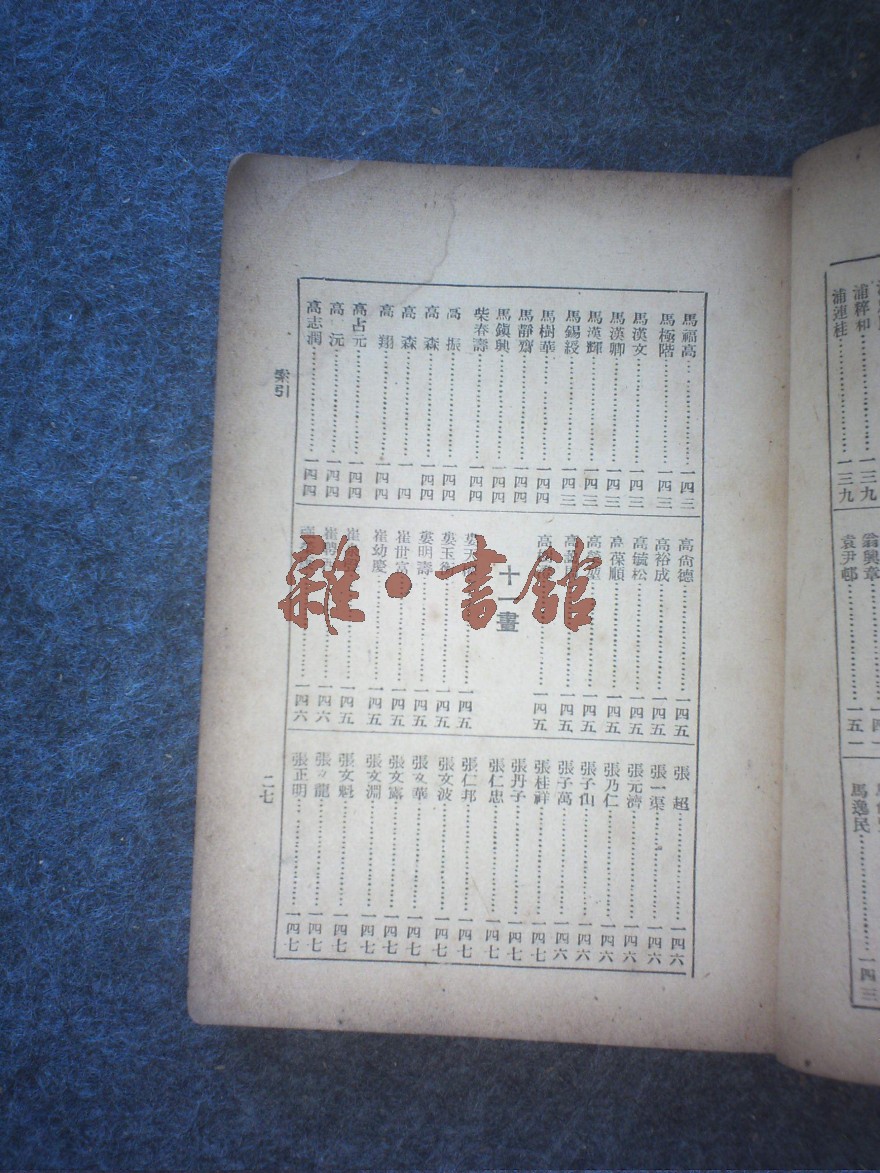 馬福高……一四三
馬極階……一四三
馬漢文……一四三
馬漢卿……一四三
馬漢輝……一四三
馬錫綬……一四三
馬樹華……一四四
馬靜齋……一四四
馬鎭興……一四四
柴春濤……一四四
高 振……一四四
高 森……一四四
高 森……一四
高 翔……一四四
高占元……一四四
高 沅……一四四
高志潤……一四四
高尙德……一四五
高裕成……一四五
高毓松……一四五
高葆順……一四五
高
高
高
十一畫
婁天
婁玉
婁明濤……一四五
崔世富……一四五
崔幼慶……一四五
崔
崔聘
張 超……一四六
張一渠……一四六
張元濟……一四六
張乃仁……一四六
張子仙……一四六
張子萬……一四六
張桂祥……一四七
張丹子……一四七
張仁忠……一四七
張仁邦……一四七
張文波……一四七
張文華……一四七
張文露……一四七
張文澗……一四七
張文魁……一四七
張文龍……一四七
張正明……一四七
索引
二七
浦粹和……一三九
浦連桂……一三九
翁興章
袁尹邨……一五一
馬逸民……一四三
雜·書館